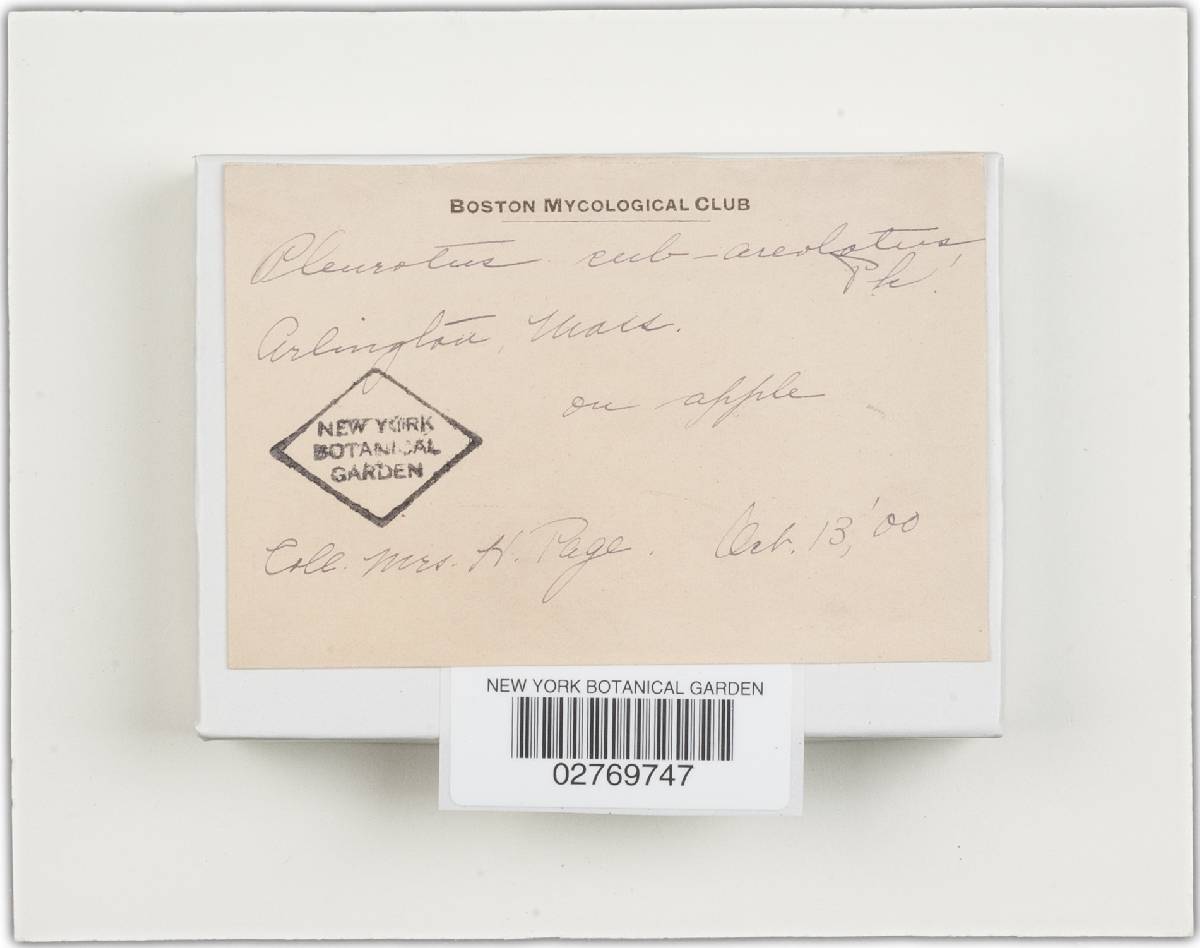 BOSTON MYCOLOGICAL CLUB
Pleurotus sub-areolatus
Pk!
Arlington, Mass.
on apple
NEW YORK
BOTANICAL
GARDEN
Coll. Mrs. H. Page. Oct. 13, '00
NEW YORK BOTANICAL GARDEN
02769747